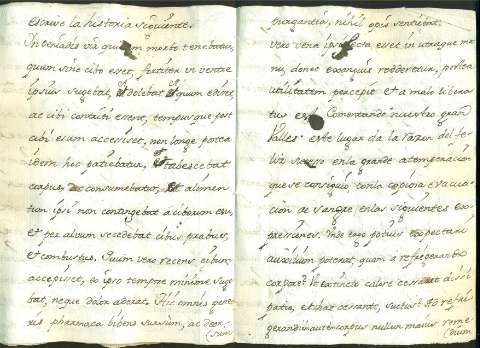 escrive la historia siguiente.
In oeniadis via morbo tenebatur,
quum sine cibo esset, fortiter in ventre
ipsius sugebat, et dolebat et quum edisset,
ac cibi comesti erent, tempusque post
cibi esum accessisset, non longe postea
idem hoc patiebatur, et tabescebat
corpus, ac consumebatur, et alimen-
tum ipsi non contingebat a ciborum esu,
et per alvum secedebat cibus prabus,
et combustus. Quum vero recens cibum
accepisset, eo ipso tempore minime suge-
bat, neque dolor aderat. Hic omnis gene-
ris pharmaca bibens sursum, ac deor-
(sum
purgantia, nihil opis sentiebat.
vero vena secta esset in utraque ma-
nu, donec exanguis redderetur, postea
utilitatem percepit et a malo libera-
tus est. Comentando nuestro gran
Valles este lugar da la razon del fe-
liz suceso en la grande atemperacion
que se consiguio con la copiosa evacua-
cion de sangre, en las siguientes ex-
presiones. Unde ergo potuis expectari
auxilium poterat, quam a refrigerante
corpore? Vt extincto calore cessaret dissi-
patio, et hac cessante, suctus? Ad refri-
gerandum autem corpus nullum maius reme-
(dium